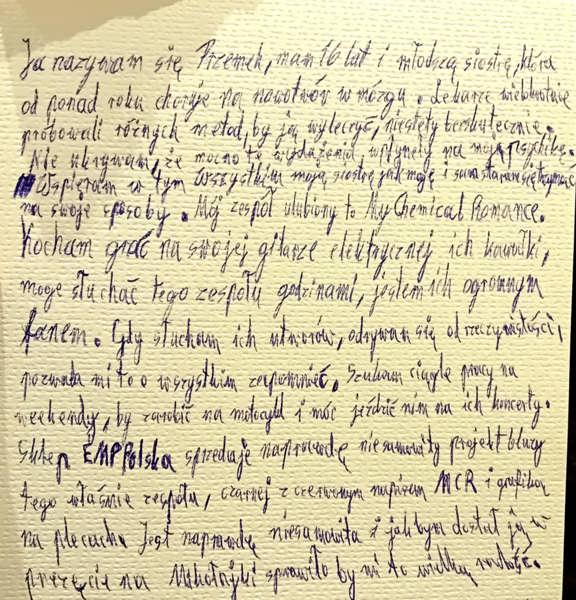 Ja nazywam się Przemek, mam 16 lat i młodszą siostrę, która
od ponad roku choruje na nowotwór w mózgu. Lekarze wielokrotnie
próbowali różnych metod, by ją wyleczyć, niestety bezskutecznie.
Nie ukrywam, że mocno te wydarzenia wpłynęły na moją psychikę.
Wspieram w tym wszystkim moją siostrę jak mogę i sam staram się trzymać
na swoje sposoby. Mój zespół ulubiony to My Chemical Romance.
Kocham grać na swojej gitarze elektrycznej ich kawałki,
moge słuchać tego zespołu godzinami, jestem ich ogromnym
fanem. Gdy słucham ich utworów, odrywam się od rzeczywistości,
pozwala mi to o wszystkim zapomnieć. Szukam ciągle pracy na
weekendy, by zarobić na motocykl i móc jeździć nim na ich koncerty.
Sklep EMP Polska sprzedaje naprawdę niesamowity projekt bluzy
tego właśnie zespołu, czarnej z czerwonym napisem MCR i grafiką
na plecach. Jest naprawdę niesamowita i jakbym dostał ją w
prezęcie na Mikołajki sprawiło by mi to wielką radość.